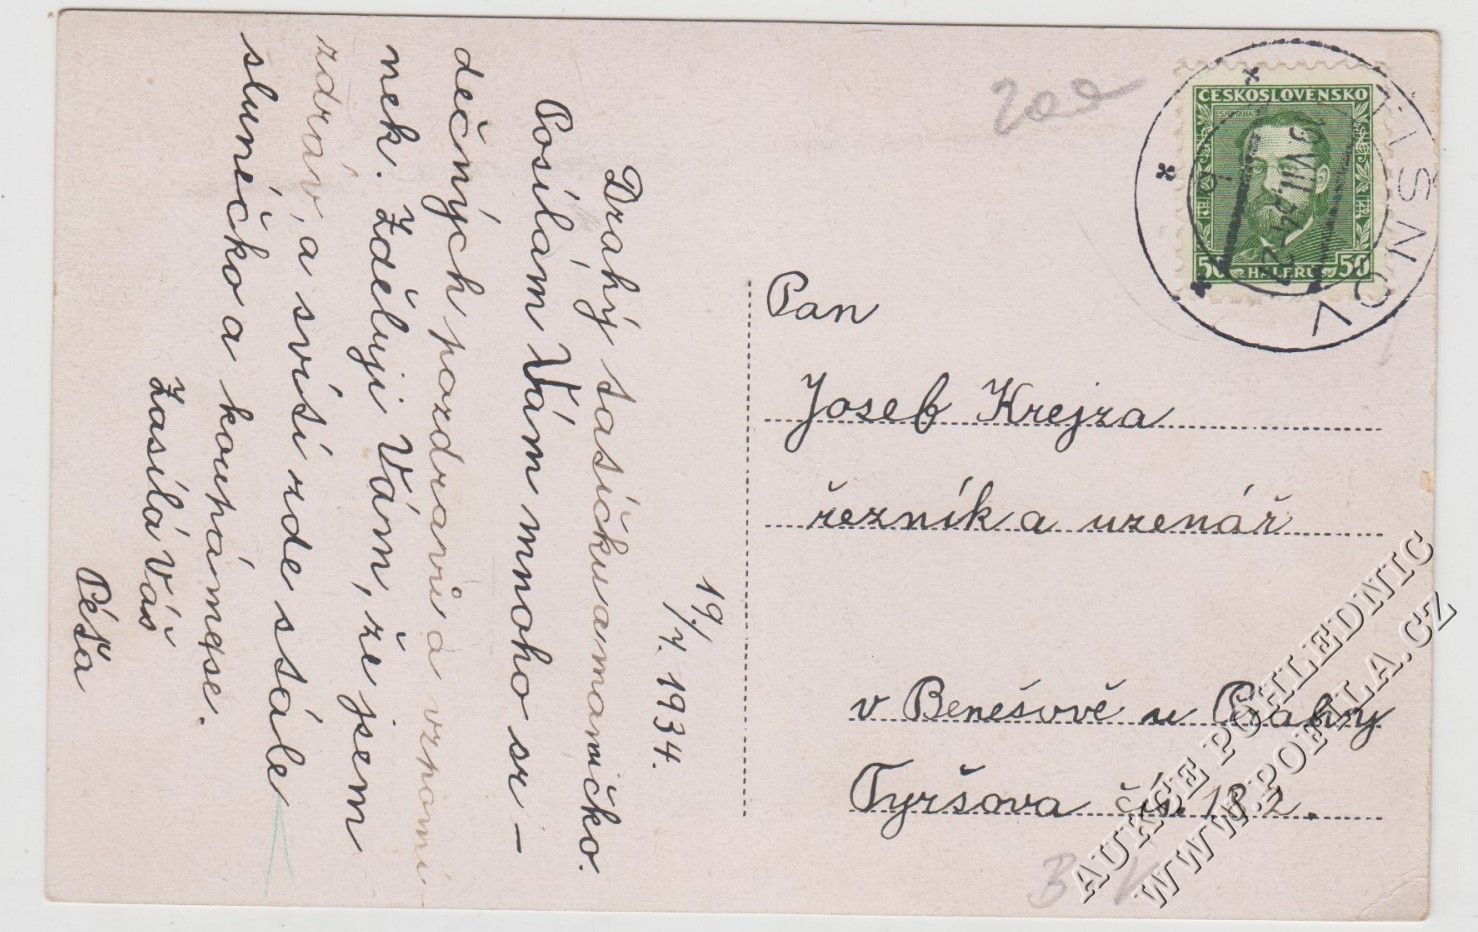 19./7. 1934.
Drahý tasíčku a mamičko.
Posílám Vám mnoho sr-
dečných pozdravů a vzpomí
nek. Zděluji Vám, že jsem
zdráv, a svítí zde stále
sluníčko a koupámese.
Zasílá Váš
Péťa
ČESKOSLOVENSKO
50 HALÉŘŮ 50
TIŠNOV
19.VII.34
Pan
Josef Krejza
řezník a uzenář
v Benešově u Prahy
Tyršova čís. 182.
AUKCE POHLEDNIC
WWW.POFILA.CZ